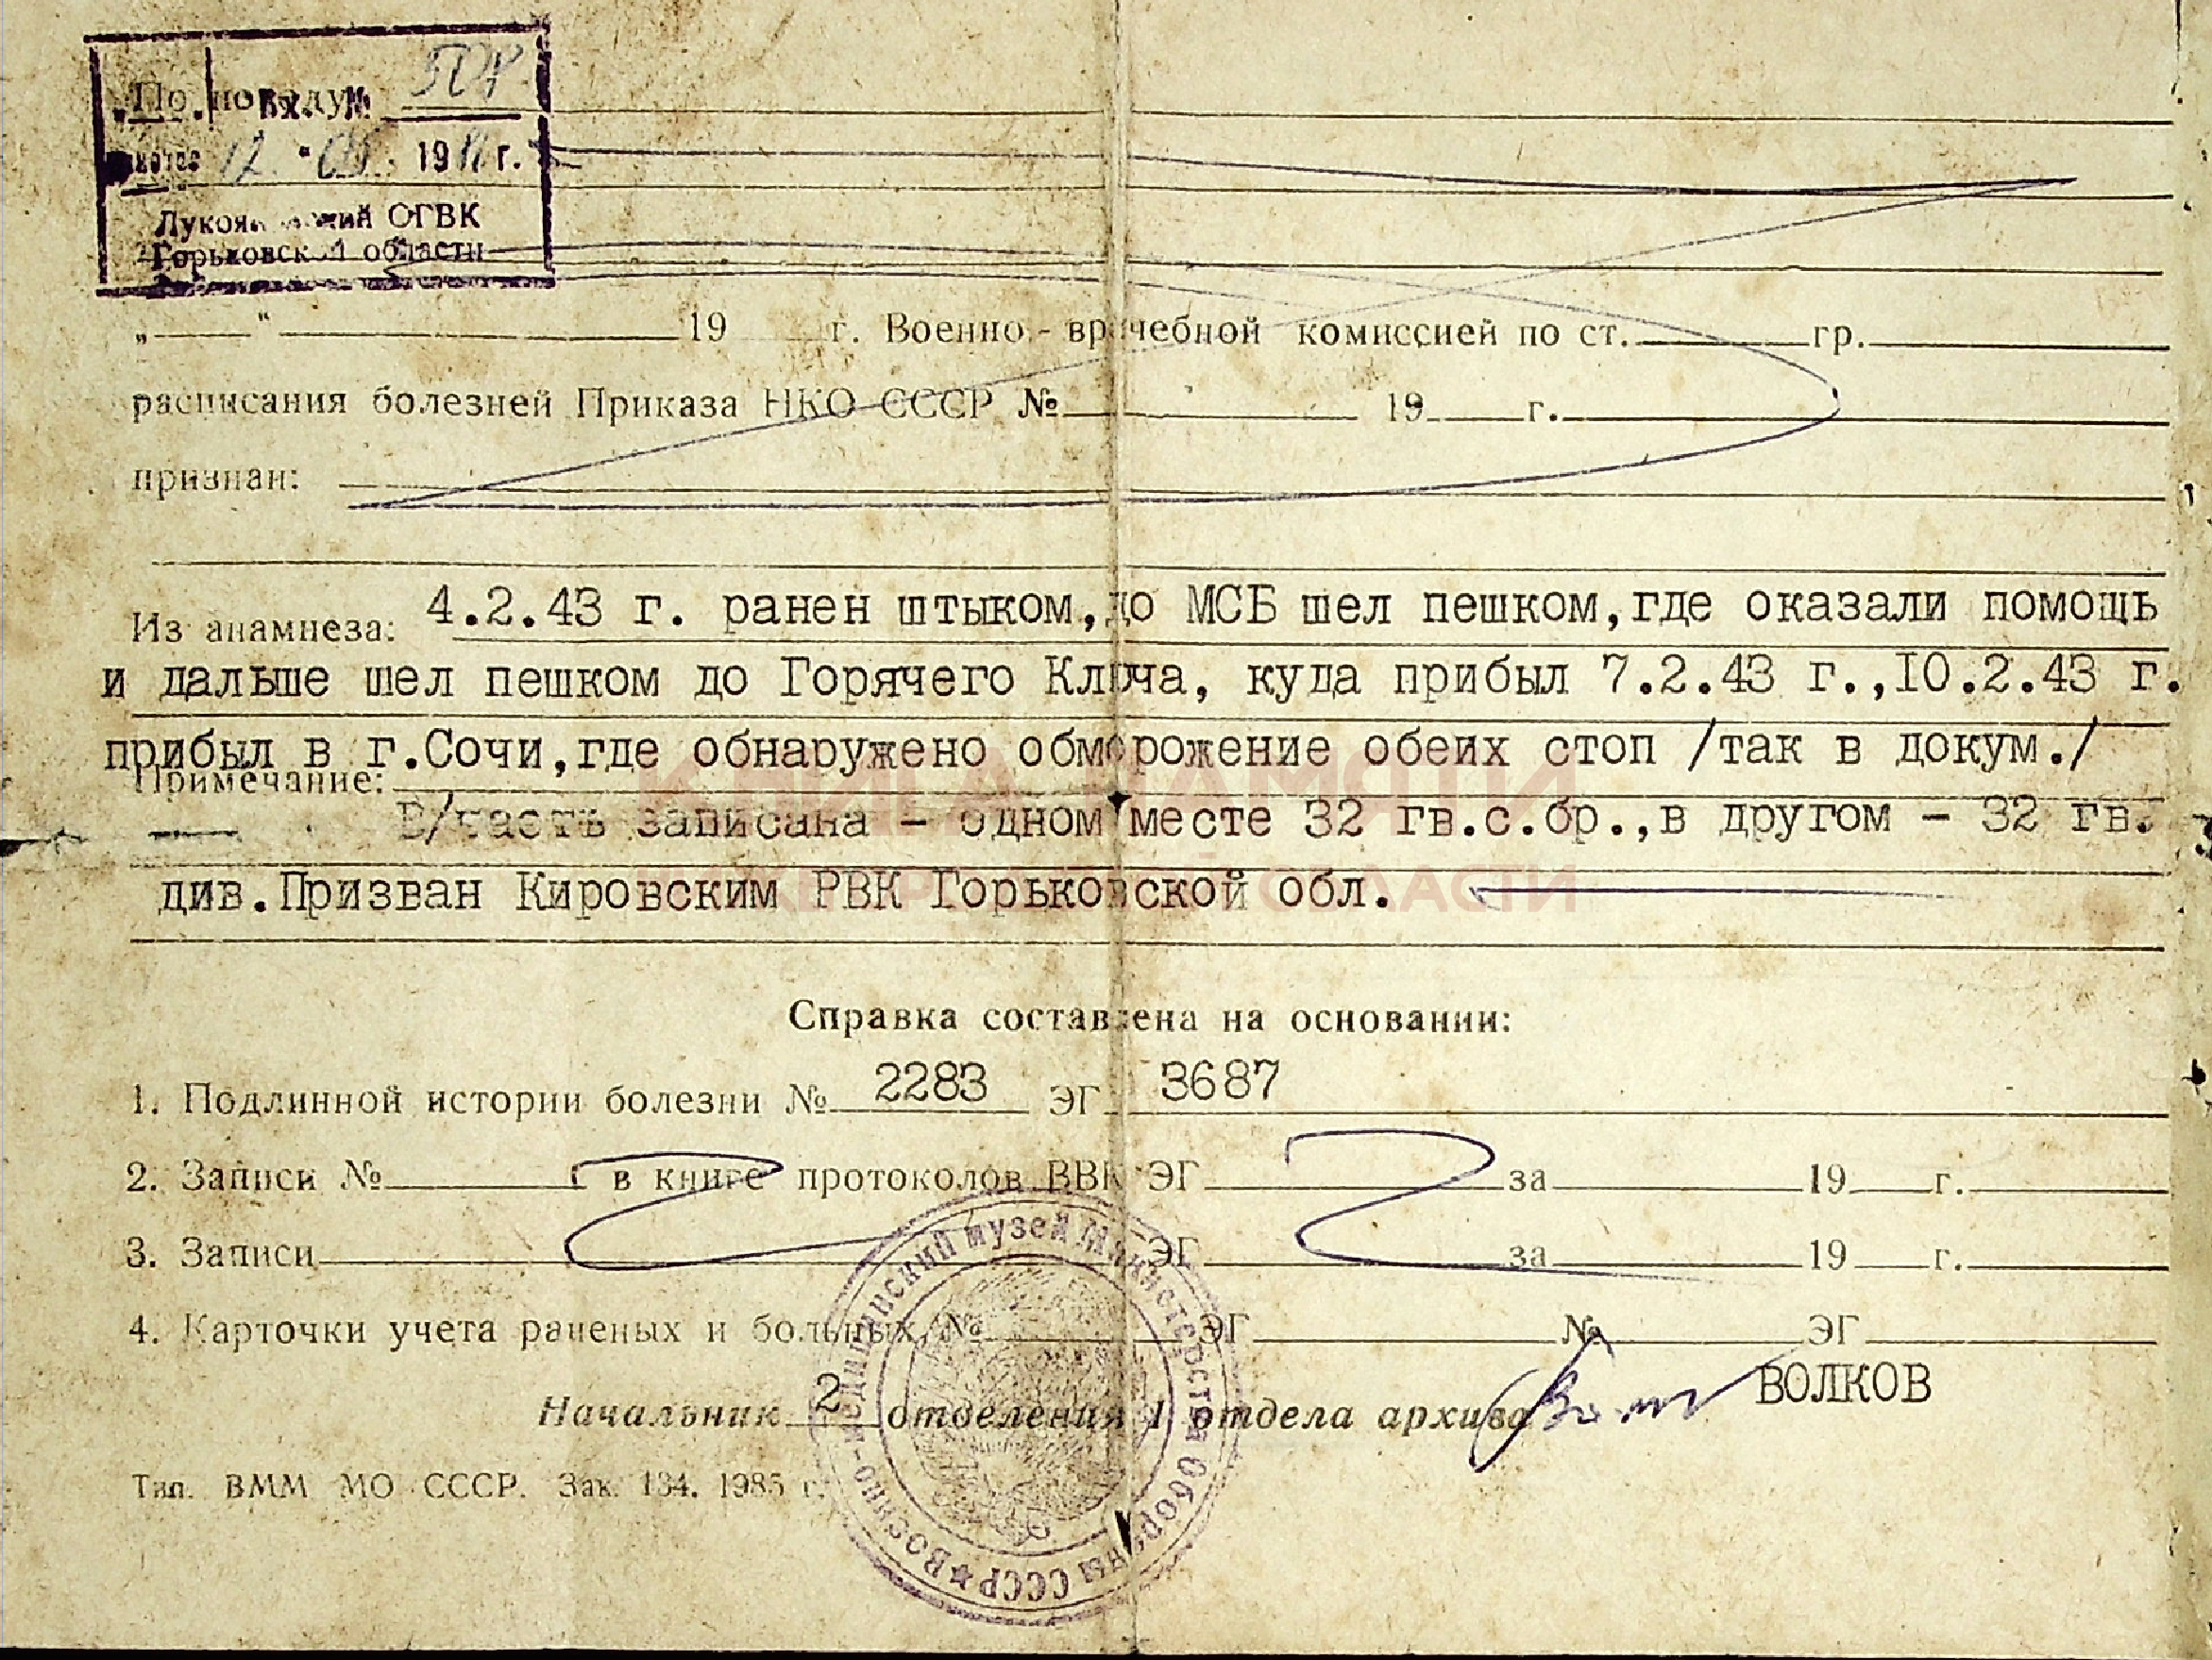 По поводу
Вх. №
19 г.
ОГВК
Горьковской области
„ “ 19 г. Военно-врачебной комиссией по ст. гр.
расписания болезней Приказа НКО СССР № 19 г.
признан:
Из анамнеза: 4.2.43 г. ранен штыком,до МСБ шел пешком,где оказали помощь
и дальше шел пешком до Горячего Ключа, куда прибыл 7.2.43 г.,10.2.43 г.
прибыл в г.Сочи,где обнаружено обморожение обеих стоп /так в докум./
Примечание:
В/часть записана - одном месте 32 гв.с.бр.,в другом - 32 гв.
див.Призван Кировским РВК Горьковской обл.
КНИГА ПАМЯТИ
ОБЛАСТИ
Справка составлена на основании:
1. Подлинной истории болезни № 2283 ЭГ 3687
2. Записи № в книге протоколов ВВК ЭГ за 19 г.
3. Записи ЭГ за 19 г.
4. Карточки учета раненых и больных № ЭГ № ЭГ
Начальник 2 отделения 1 отдела архива ВОЛКОВ
Военно-медицинский музей Министерства Обороны СССР
Тип. ВММ МО СССР. Зак. 134. 1985 г.